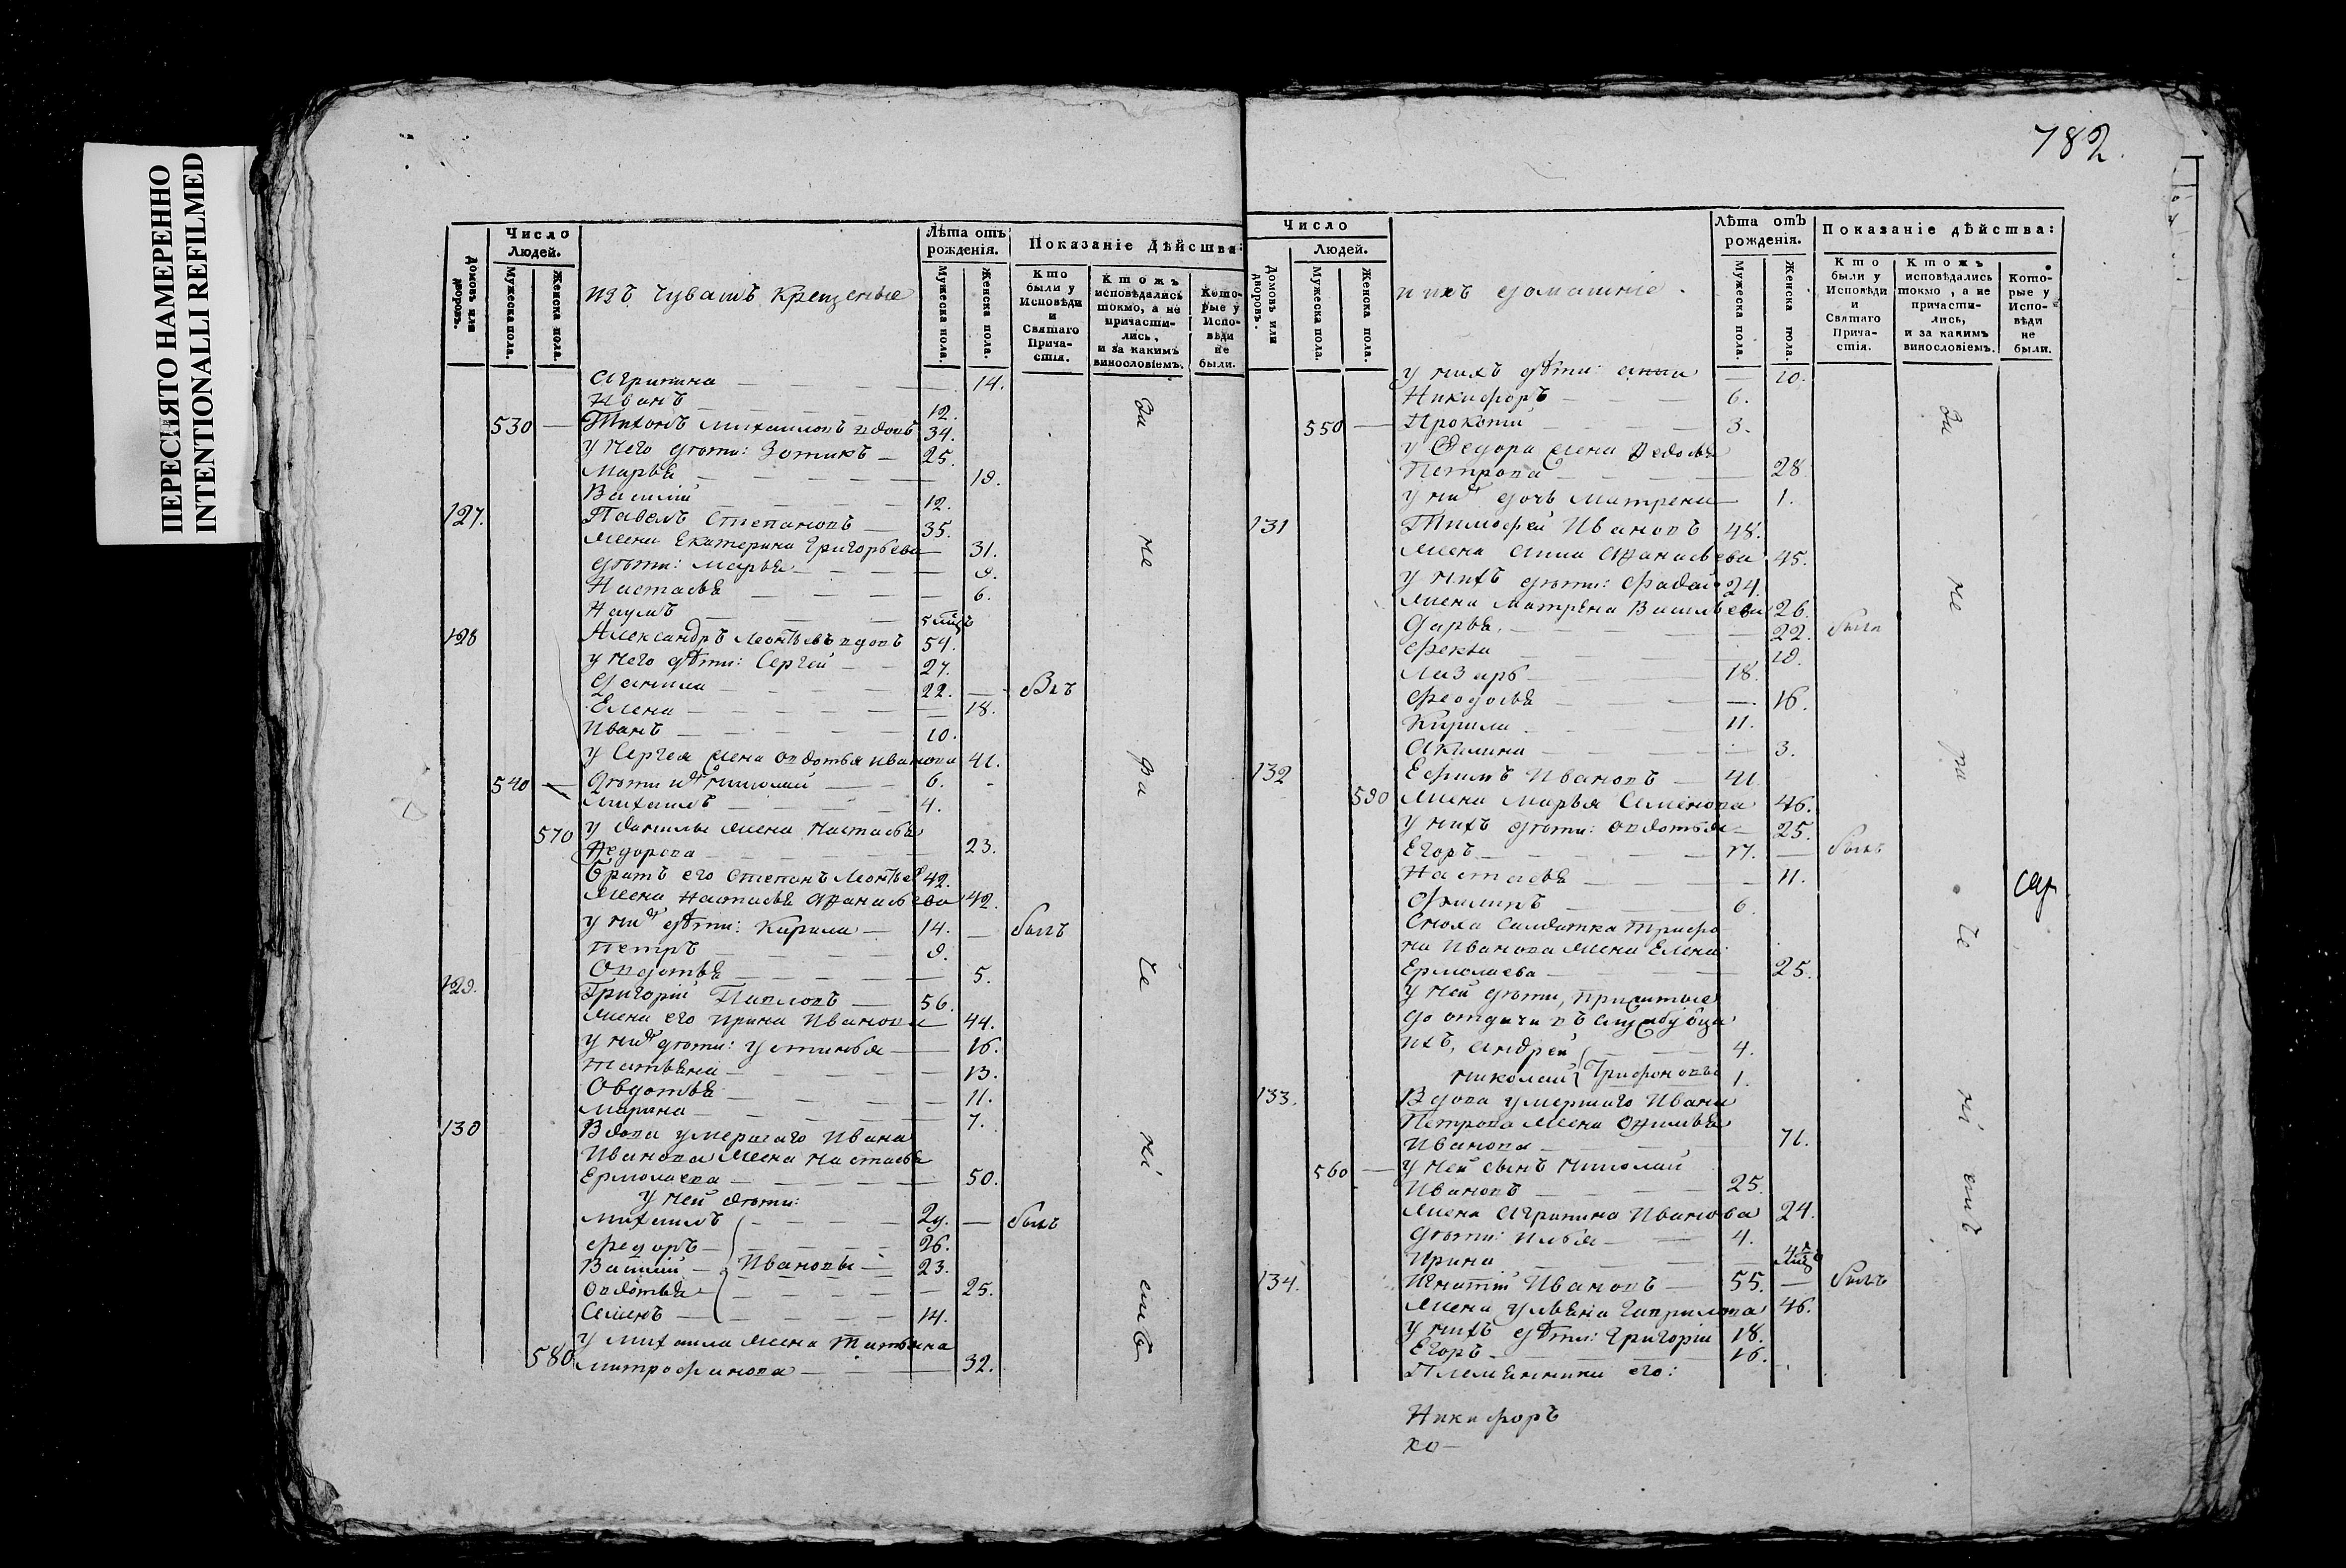 ПЕРЕСНЯТО НАМЕРЕННО
INTENTIONALLI REFILMED
Домовъ или дворовъ.
Число Людей.
Мужеска пола.
Женска пола.
изъ Чувашъ Крещеные
Лѣта отъ рожденія.
Мужеска пола.
Женска пола.
Показаніе Дѣйства:
Кто были у Исповѣди и Святаго Прича-стія.
Ктожъ исповѣдались токмо, а не причасти-лись, и за какимъ винословіемъ.
Кото-рые у Испо-вѣди не были.
Агрипина — 14.
Иванъ — 12.
530 — Тихонъ Михаиловъ вдовъ 34.
у него дѣти: Зотикъ — 25.
Марья — 19.
Василій — 12.
127. Павелъ Степановъ — 35.
жена Екатерина Григорьева 31.
дѣти: Марья — 9.
Настасья — 6.
Наумъ — 5 мцъ
128 Александръ Леонтьевъ вдовъ 54.
у него дѣти: Сергей — 27.
Данила — 22. — былъ
Елена — 18.
Иванъ — 10.
у Сергея жена Овдотья Иванова 41.
540 — дѣти ихъ Николай — 6.
Михаилъ — 4.
570 у Данилы жена Настасья
Федорова — 23.
Братъ его Степанъ Леонтьевъ 42.
жена Настасья Афанасьева 42.
у нихъ дѣти: Кирила — 14. — былъ
Петръ — 9.
Овдотья — 5.
129. Григорій Павловъ — 56.
жена его Ирина Иванова 44.
у нихъ дѣти: Устинья — 16.
Татьяна — 13.
Овдотья — 11.
Марина — 7.
130 Вдова умершаго Ивана
Иванова жена Настасья
Ермолаева — 50.
у ней дѣти:
Михаилъ — 29. — былъ
Федоръ — 26.
Василій — Ивановы — 23.
Овдотья — 25.
Семенъ — 14.
у Михаила жена Татьяна
580 Митрофанова — 32.
за не ра че ні емъ
782.
Число
Домовъ или дворовъ.
Людей.
Мужеска пола.
Женска пола.
и ихъ домашніе.
Лѣта отъ рожденія.
Мужеска пола.
Женска пола.
Показаніе дѣйства:
Кто были у Исповѣди и Святаго Прича-стія.
Ктожъ исповѣдались токмо, а не причасти-лись, и за какимъ винословіемъ.
Кото-рые у Испо-вѣди не были.
у нихъ дѣти: Анна — 10.
Никифоръ — 6.
550 — Прокопій — 3.
у Федора жена Федосья
Петрова — 28
у нихъ дочь Матрена — 1.
131 Тимофей Ивановъ 48.
жена Анна Афанасьева 45.
у нихъ дѣти: Фадей 24.
жена Матрена Васильева 26.
Дарья — 22. была
Фекла — 19.
Лазарь — 18.
Феодосья — 16.
Кирила — 11.
Акилина — 3.
132 Ефимъ Ивановъ — 41
590 жена Марья Семенова 46.
у нихъ дѣти: Овдотья — 25.
Егоръ — 17. — былъ
Настасья — 11.
Филипъ — 6.
Сноха Салдатка Трифо
на Иванова жена Елена
Ермолаева — 25.
у ней дѣти, прижитые
до отдачи въ службу отца
ихъ, Андрей — 4.
Николай Трифоновы 1.
133. Вдова умершаго Ивана
Петрова жена
Иванова — 71.
560 — у ней сынъ Николай
Ивановъ — 25.
жена Агрипина Иванова 24.
дѣти: Илья — 4.
Ирина
134. Игнатій Ивановъ — 55. — былъ
жена Ульяна Гаврилова 46.
у нихъ дѣти: Григорій 18.
Егоръ — 16.
Племянники его:
за не ра че ні емъ
Никифоръ